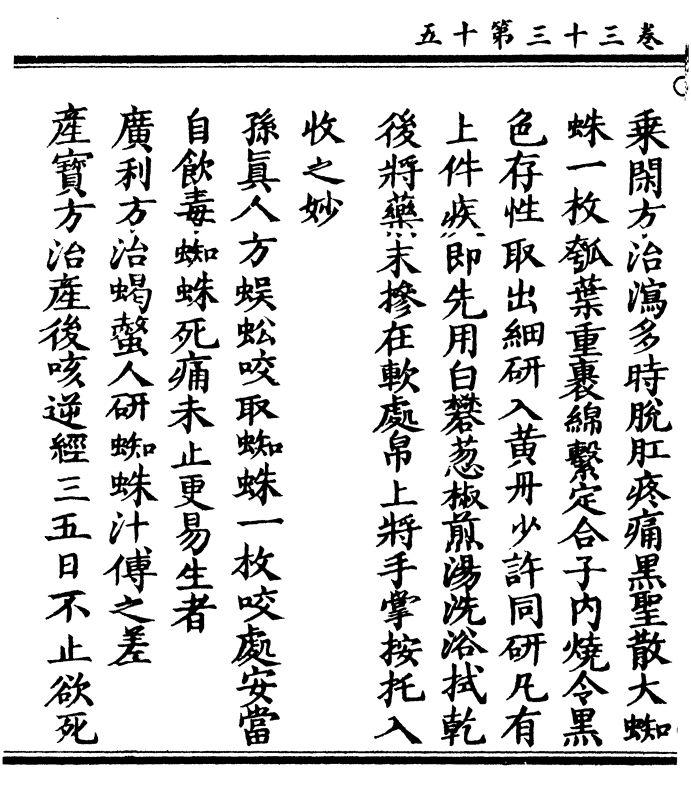 卷三十三第十五
乗閑方治瀉多時脫肛疼痛黑聖散大蜘
蛛一枚瓠葉重裹綿繫定合子内燒令黑
色存性取出細研入黃丹少許同研凡有
上件疾即先用白礬葱椒煎湯洗浴拭乾
後將藥末摻在軟處帛上將手掌按托入
收之妙
孫真人方蜈蚣咬取蜘蛛一枚咬處安當
自飲毒蜘蛛死痛未止更易生者
廣利方治蝎螫人研蜘蛛汁傅之差
產寶方治產後咳逆經三五日不止欲死